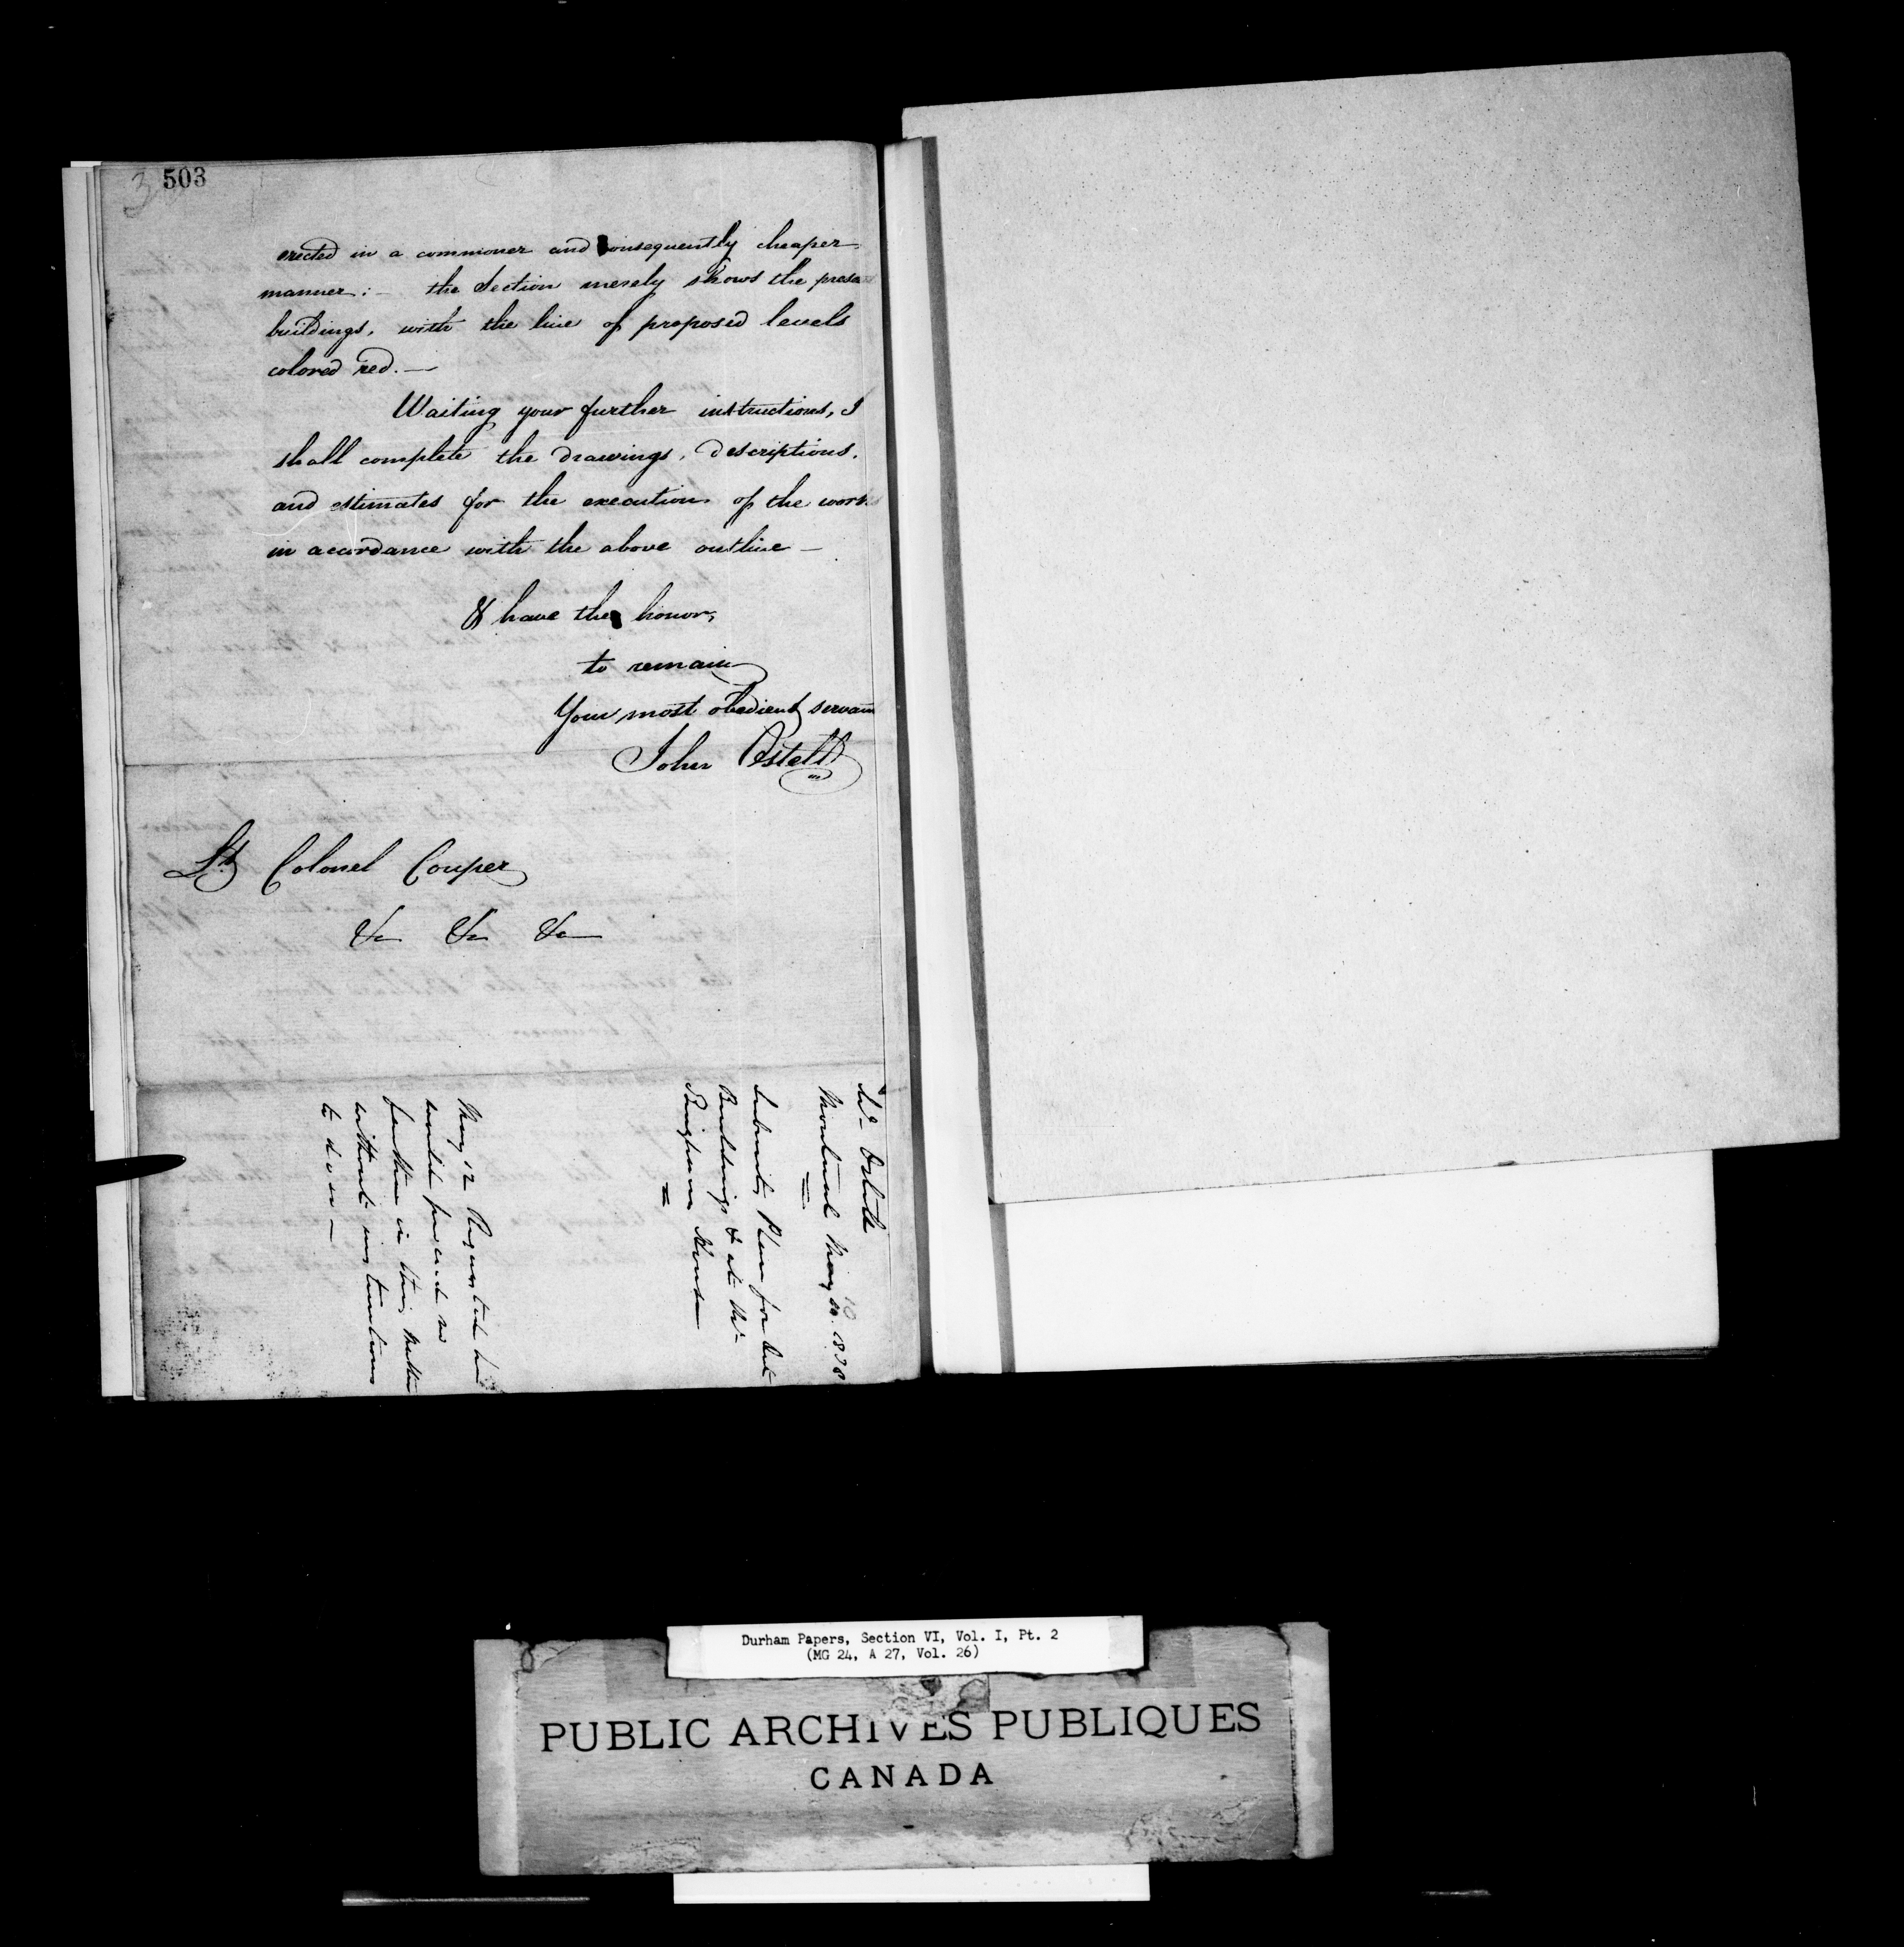 3
503
erected in a commoner and consequently cheaper
manner:- the Section merely shows the prese
buildings, with the line of proposed levels
colored red.—
Waiting your further instructions, I
shall complete the drawings, descriptions,
and estimates for the execution of the works
in accordance with the above outline —
I have the honor,
to remain
Your most obedient servan
John Ostell
Lt Colonel Couper
&c &c &c
Mr Ostell
Montreal May 10. 1838
Submits Plan for Out
Buildings &c at the
Bingham House
May 12 Requested he
would proceed no
further in this matter
without instructions
to do so —
Durham Papers, Section VI, Vol. I, Pt. 2
(MG 24, A 27, Vol. 26)
PUBLIC ARCHIVES PUBLIQUES
CANADA